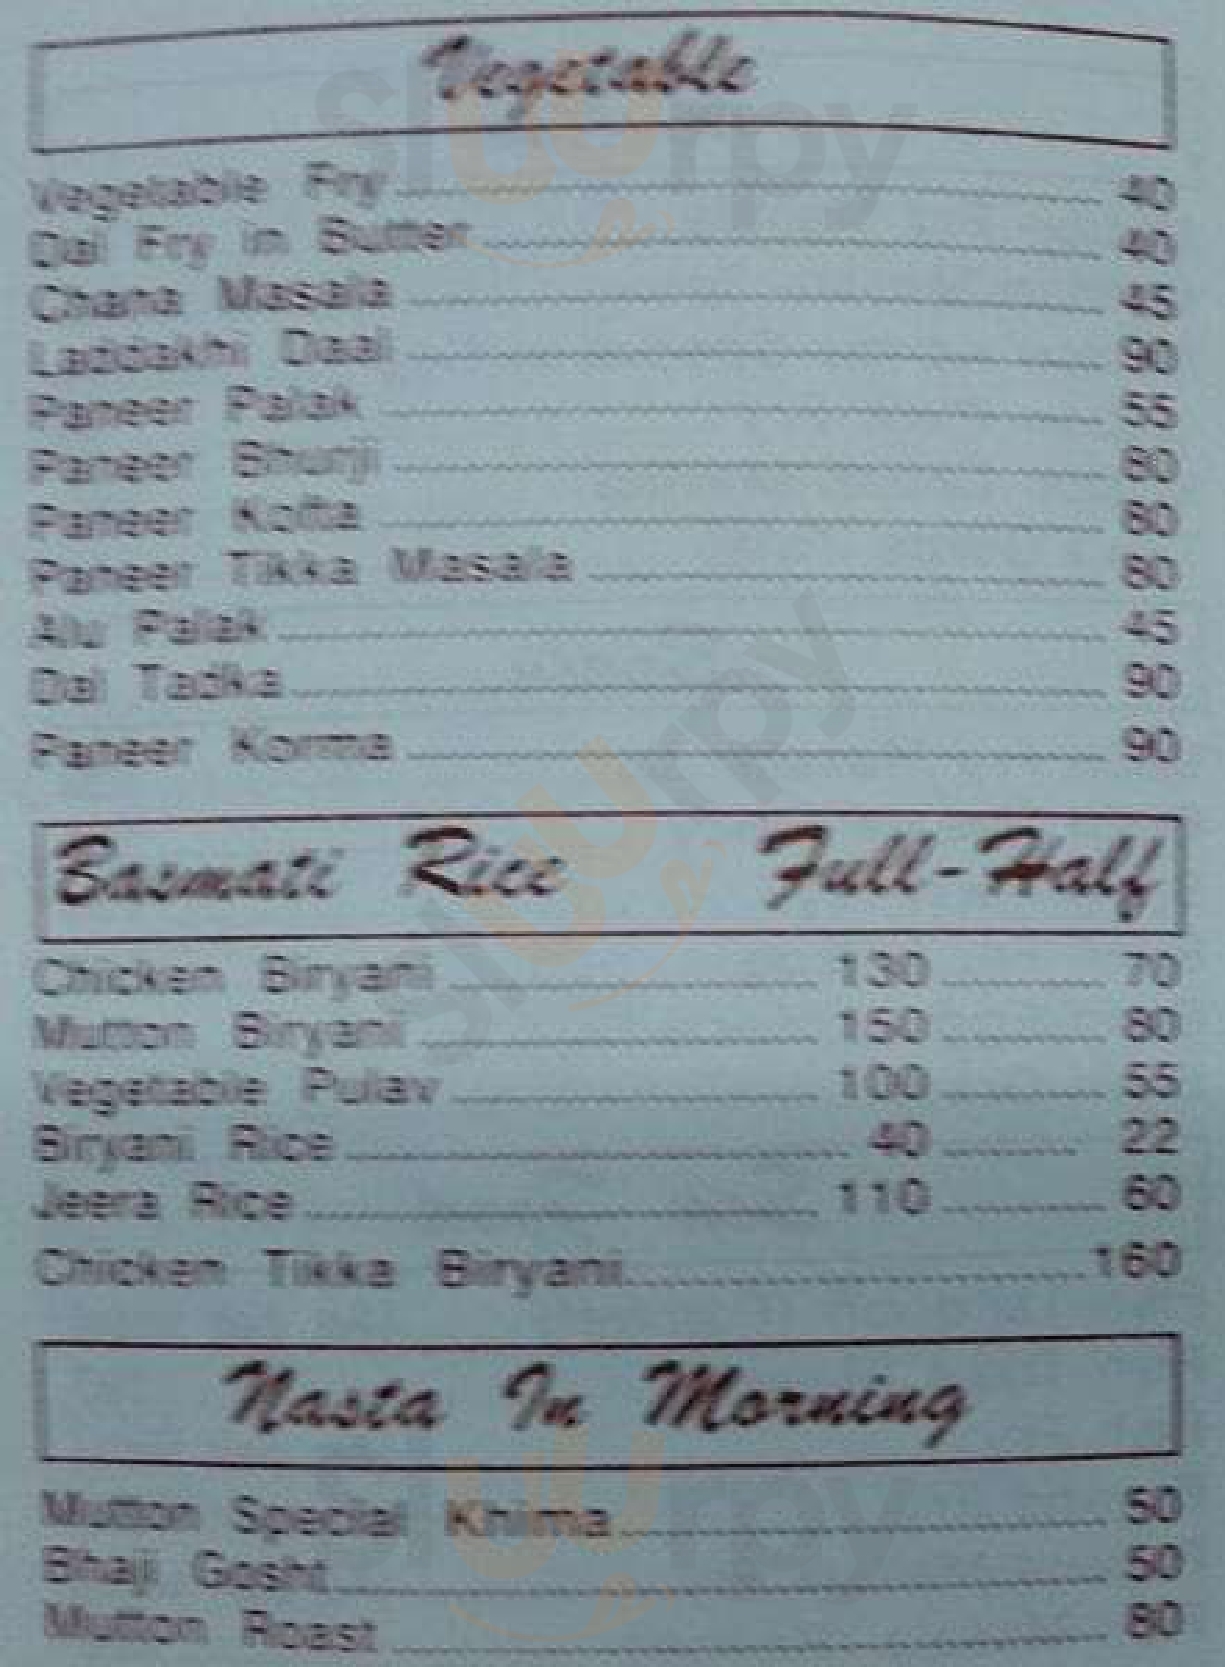 Vegetable
Vegetable Fry 40
Dal Fry in Butter 40
Chana Masala 45
Laddakhi Daal 90
Paneer Palak 55
Paneer Bhurji 80
Paneer Kofta 80
Paneer Tikka Masala 80
Alu Palak 45
Dal Tadka 90
Paneer Korma 90
Basmati Rice Full-Half
Chicken Biryani 130 70
Mutton Biryani 150 80
Vegetable Pulav 100 55
Biryani Rice 40 22
Jeera Rice 110 60
Chicken Tikka Biryani 160
Nasta In Morning
Mutton Special Khima 50
Bhaji Gosht 50
Mutton Roast 80
slurrpy
slurrpy
slurrpy